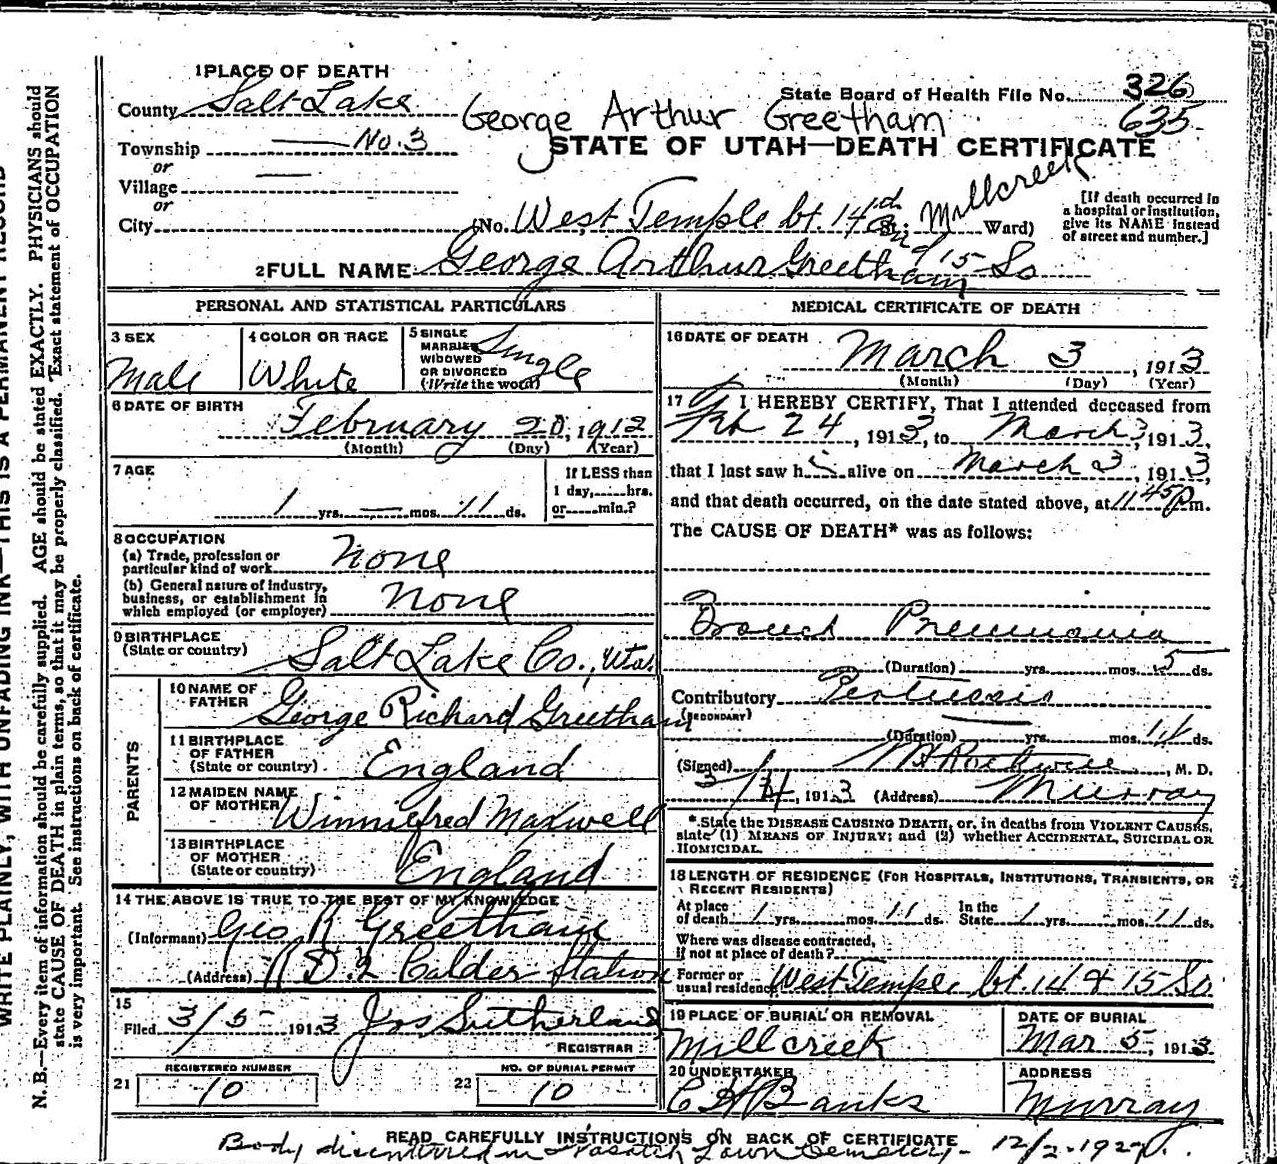 1 PLACE OF DEATH
County Salt Lake
Township — No. 3
or
Village —
or
City
State Board of Health File No. 326
635
George Arthur Greetham
STATE OF UTAH—DEATH CERTIFICATE
(No. West Temple bt. 14 St; Millcreek Ward)
and 15 So
[If death occurred in
a hospital or institution,
give its NAME instead
of street and number.]
2 FULL NAME George Arthur Greetham
PERSONAL AND STATISTICAL PARTICULARS
3 SEX
Male
4 COLOR OR RACE
White
5 SINGLE
MARRIED
WIDOWED
OR DIVORCED
(Write the word)
Single
6 DATE OF BIRTH
February 20, 1912
(Month) (Day) (Year)
7 AGE
1 yrs. — mos. 11 ds.
If LESS than
1 day,......hrs.
or......min.?
8 OCCUPATION
(a) Trade, profession or
particular kind of work None
(b) General nature of industry,
business, or establishment in
which employed (or employer) None
9 BIRTHPLACE
(State or country) Salt Lake Co., Utah
PARENTS
10 NAME OF
FATHER George Richard Greetham
11 BIRTHPLACE
OF FATHER
(State or country) England
12 MAIDEN NAME
OF MOTHER Winnifred Maxwell
13 BIRTHPLACE
OF MOTHER
(State or country) England
14 THE ABOVE IS TRUE TO THE BEST OF MY KNOWLEDGE
(Informant) Geo R Greetham
(Address) R D. 2 Calder Station
15
Filed 3/5 1913 Jos Sutherland
REGISTRAR
REGISTERED NUMBER
21 10
NO. OF BURIAL PERMIT
22 10
MEDICAL CERTIFICATE OF DEATH
16 DATE OF DEATH
March 3, 1913
(Month) (Day) (Year)
17 I HEREBY CERTIFY, That I attended deceased from
Feb 24, 1913, to March 3, 1913,
that I last saw h i alive on March 3, 1913,
and that death occurred, on the date stated above, at 11 45 P m.
The CAUSE OF DEATH* was as follows:
Bronch Pneumonia
(Duration) yrs. mos. 5 ds.
Contributory Pertussis
(SECONDARY)
(Duration) yrs. mos. 14 ds.
(Signed) Rothwell, M. D.
3/4, 1913 (Address) Murray
*State the DISEASE CAUSING DEATH, or, in deaths from VIOLENT CAUSES,
state (1) MEANS OF INJURY; and (2) whether ACCIDENTAL, SUICIDAL OR
HOMICIDAL.
18 LENGTH OF RESIDENCE (FOR HOSPITALS, INSTITUTIONS, TRANSIENTS, OR
RECENT RESIDENTS)
At place
of death 1 yrs. mos. 11 ds.
In the
State 1 yrs. mos. 11 ds.
Where was disease contracted,
if not at place of death?
Former or
usual residence West Temple bt. 14 & 15 So
19 PLACE OF BURIAL OR REMOVAL
Millcreek
DATE OF BURIAL
Mar 5, 1913
20 UNDERTAKER
C H Banks
ADDRESS
Murray
READ CAREFULLY INSTRUCTIONS ON BACK OF CERTIFICATE
Body disinterred in Wasatch Lawn Cemetery - 12/2-1927.
WRITE PLAINLY, WITH UNFADING INK—THIS IS A PERMANENT RECORD
N. B.—Every item of information should be carefully supplied. AGE should be stated EXACTLY. PHYSICIANS should
state CAUSE OF DEATH in plain terms, so that it may be properly classified. Exact statement of OCCUPATION
is very important. See instructions on back of certificate.